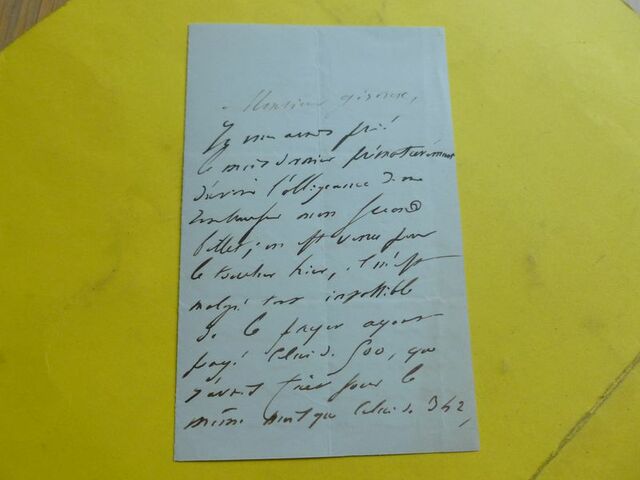 Monsieur
Je vous avais prié
le mois dernier
d'avoir l'obligeance de me
rembourser mon second
billet, on est venu pour
le toucher hier, il m'est
malgré tout impossible
de le payer ayant
payé celui de 500, que
j'avais tiré pour le
même mois que celui de 342,